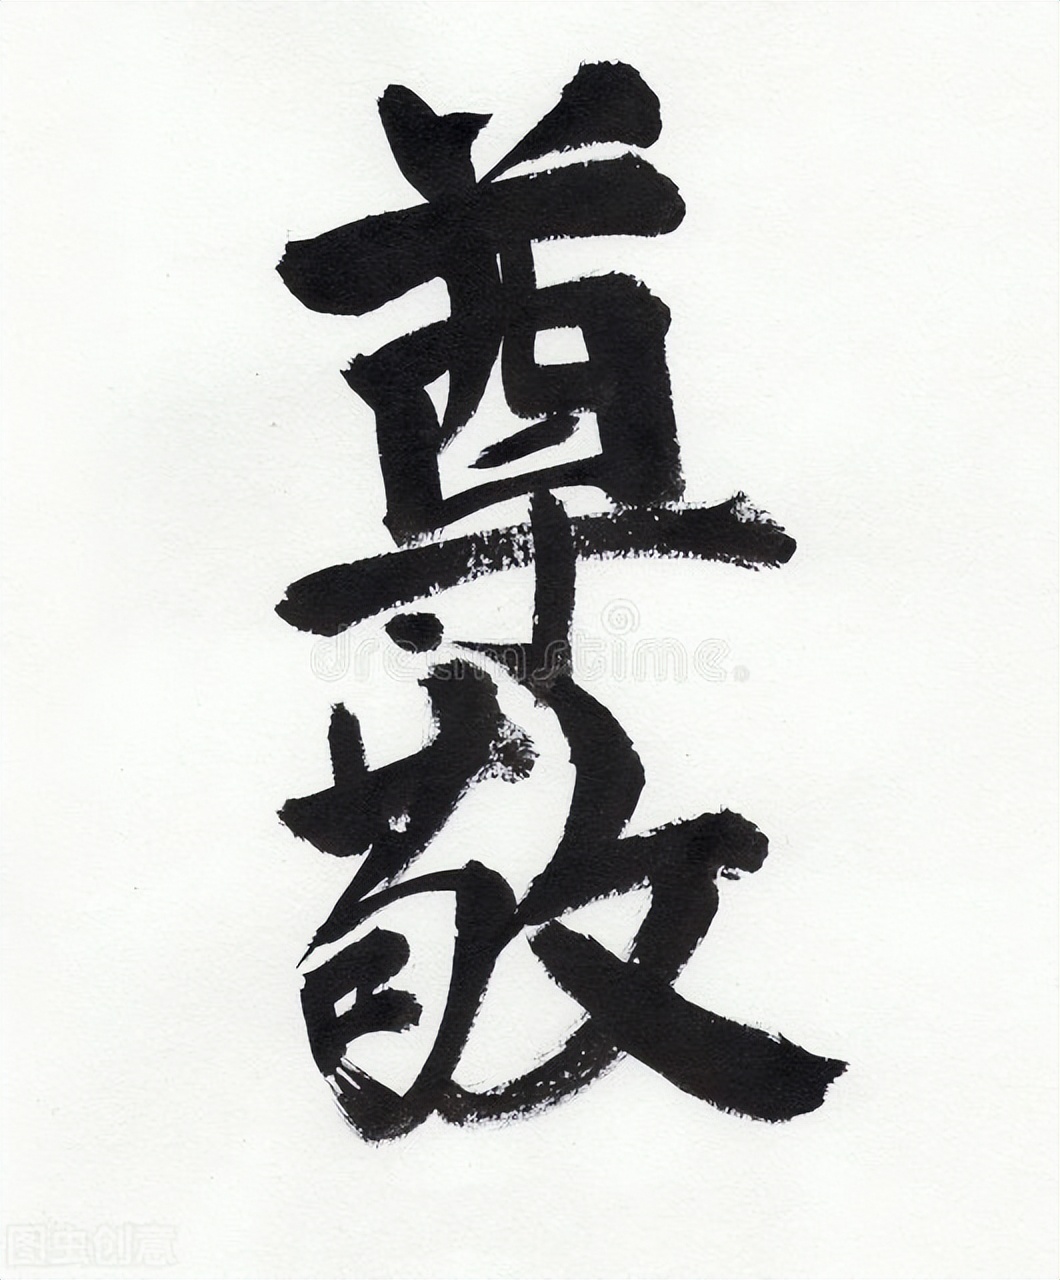 尊敬
dreamstime.
图虫创意